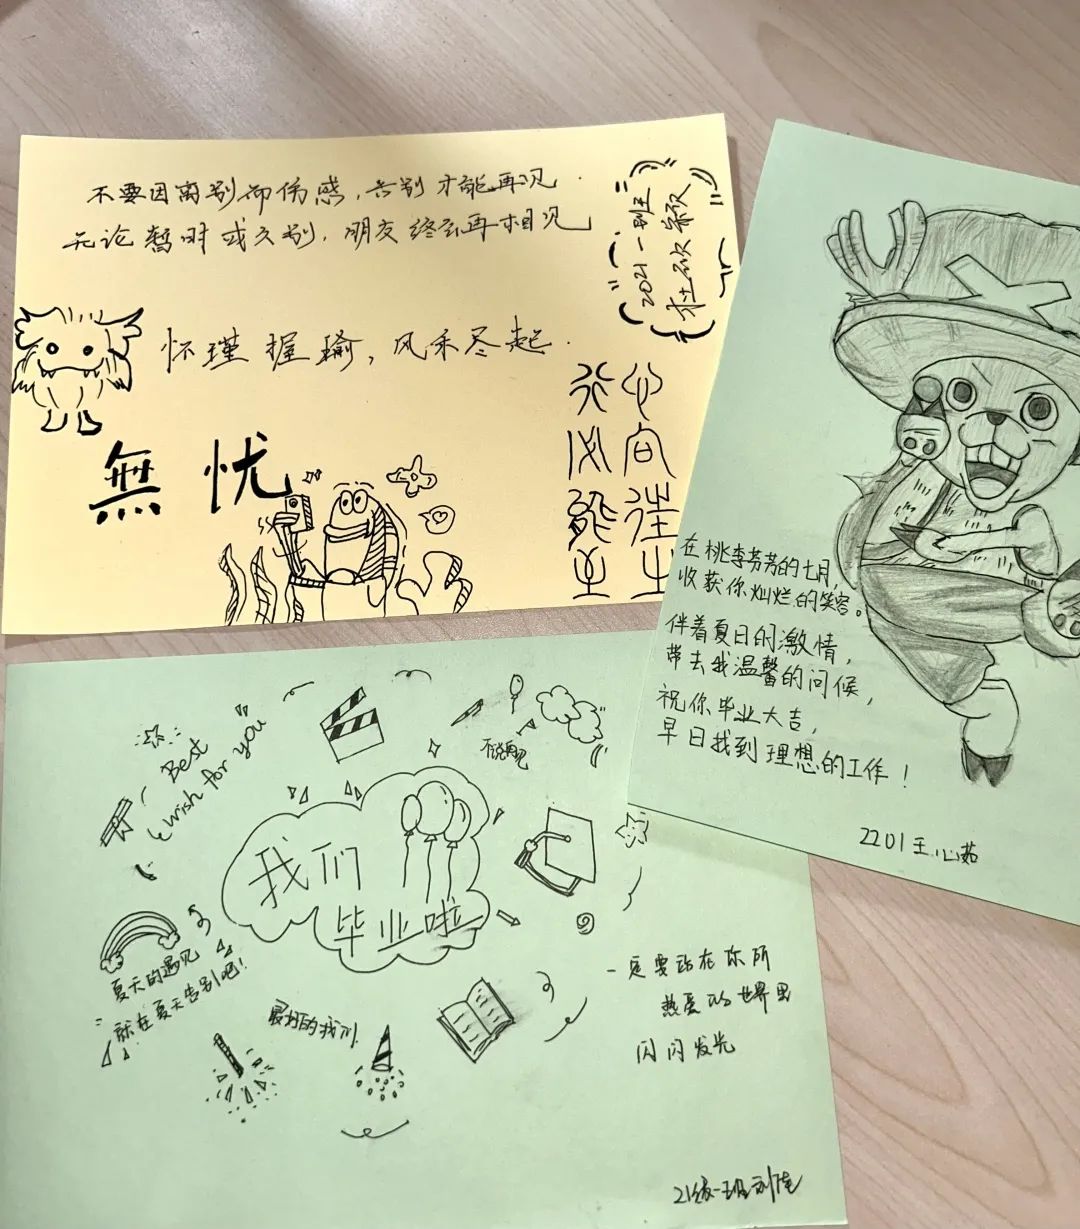 不要因离别而伤感，告别才能再见.
无论暂时或久别，朋友终会再相见
2021一班
杜欣颖
怀瑾握瑜，风禾尽起.
無忧
心向往之
行必能至
在桃李芬芳的七月，
收获你灿烂的笑容。
伴着夏日的激情，
带去我温馨的问候，
祝你毕业大吉，
早日找到理想的工作！
2201王心茹
Best
wish for you
不说再见
我们
毕业啦
夏天的遇见
就在夏天告别吧！
最好的我们.
一定要站在你所
热爱的世界里
闪闪发光
21级一班